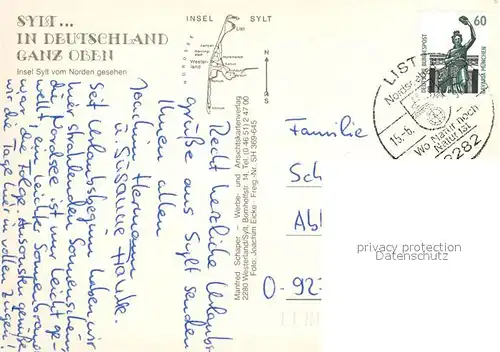 SYLT...
IN DEUTSCHLAND
GANZ OBEN
Insel Sylt vom Norden gesehen
INSEL SYLT
List
Westerland
N
NORDSEE
60
DEUTSCHE BUNDESPOST
BAVARIA MÜNCHEN
LIST
Nordseebad
15.-6.
Wo Natur noch
Natur ist
2282
Recht herzliche Urlaubs-
grüße aus Sylt senden
Ihnen allen
Joachim Hermann
u. Susanne Hauke.
Seit Urlaubsbeginn haben wir
hier strahlenden Sonnenschein,
die Nordsee ist nur leicht ge-
wellt, ein leichter Sonnenbrand
war die Folge. Ansonsten genießen
wir die Tage hier in vollen Zügen!
Manfred Schaper - Werbe- und Ansichtskartenverlag
2280 Westerland/Sylt, Bomhoffstr. 14, Tel. (0 46 51) 2 47 00
Foto: Joachim Eicke · Freig.-Nr. SH 369-645
Familie
Sch
Abl
O-92
privacy protection
Datenschutz